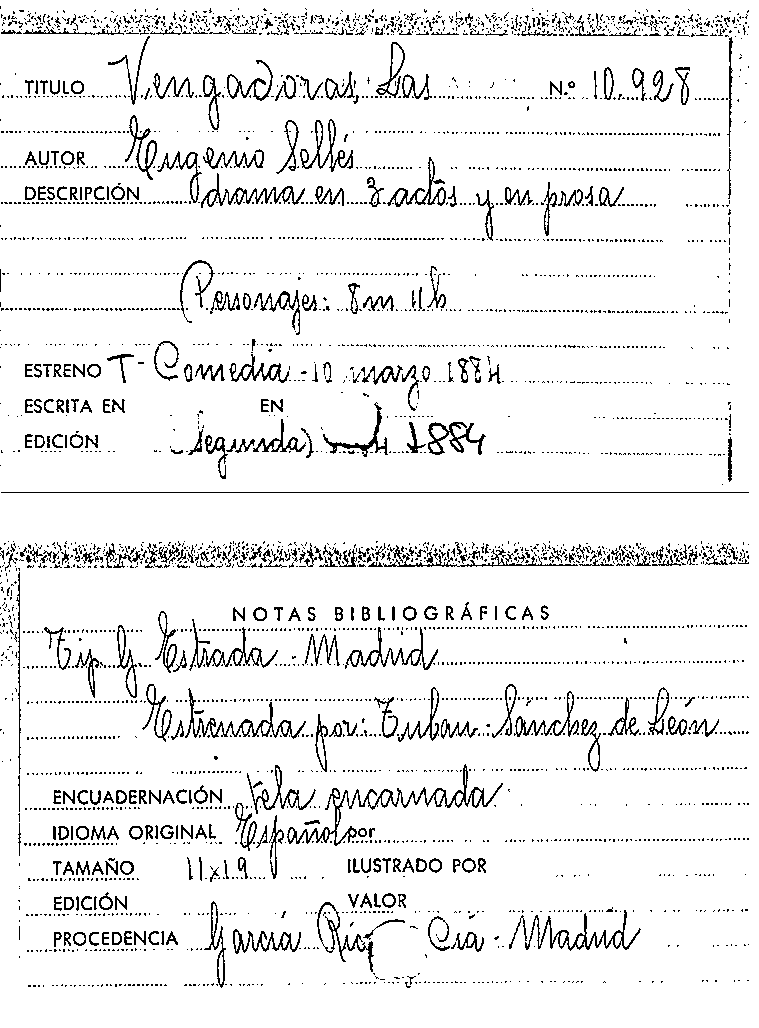 TITULO Vengadoras, Las N.º 10.928
AUTOR Eugenio Sellés
DESCRIPCIÓN drama en 3 actos y en prosa
Personajes: 8m 11h
ESTRENO T- Comedia - 10 marzo 1884
ESCRITA EN EN
EDICIÓN (Segunda) 1884
NOTAS BIBLIOGRÁFICAS
Tip G Estrada - Madrid
Estrenada por: Tubau - Sánchez de León
ENCUADERNACIÓN tela encarnada
IDIOMA ORIGINAL Español por
TAMAÑO 11x19 ILUSTRADO POR
EDICIÓN VALOR
PROCEDENCIA García Rico Cía - Madrid